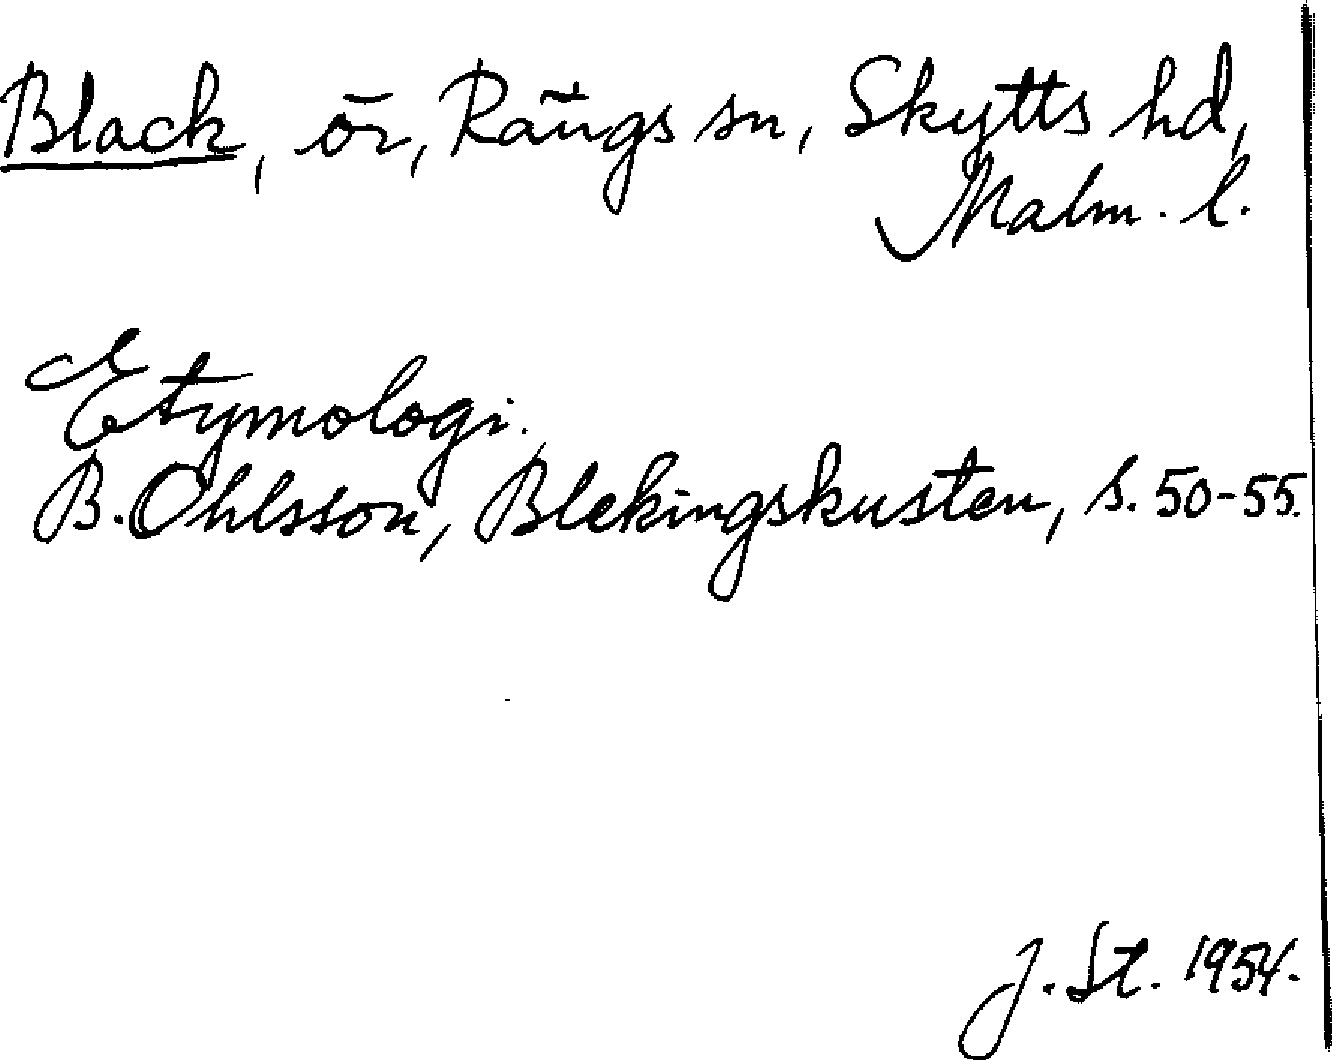 Black, ör, Rängs sn, Skytts hd,
Malm. l.
Etymologi.
B. Ohlsson, Blekingskusten, s. 50-55.
J. St. 1954.